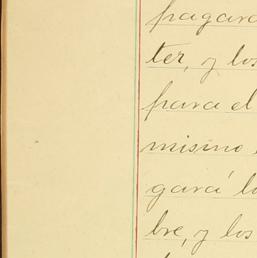 pagará
ter, y los
para el
mismo
gará lo
bre, y los